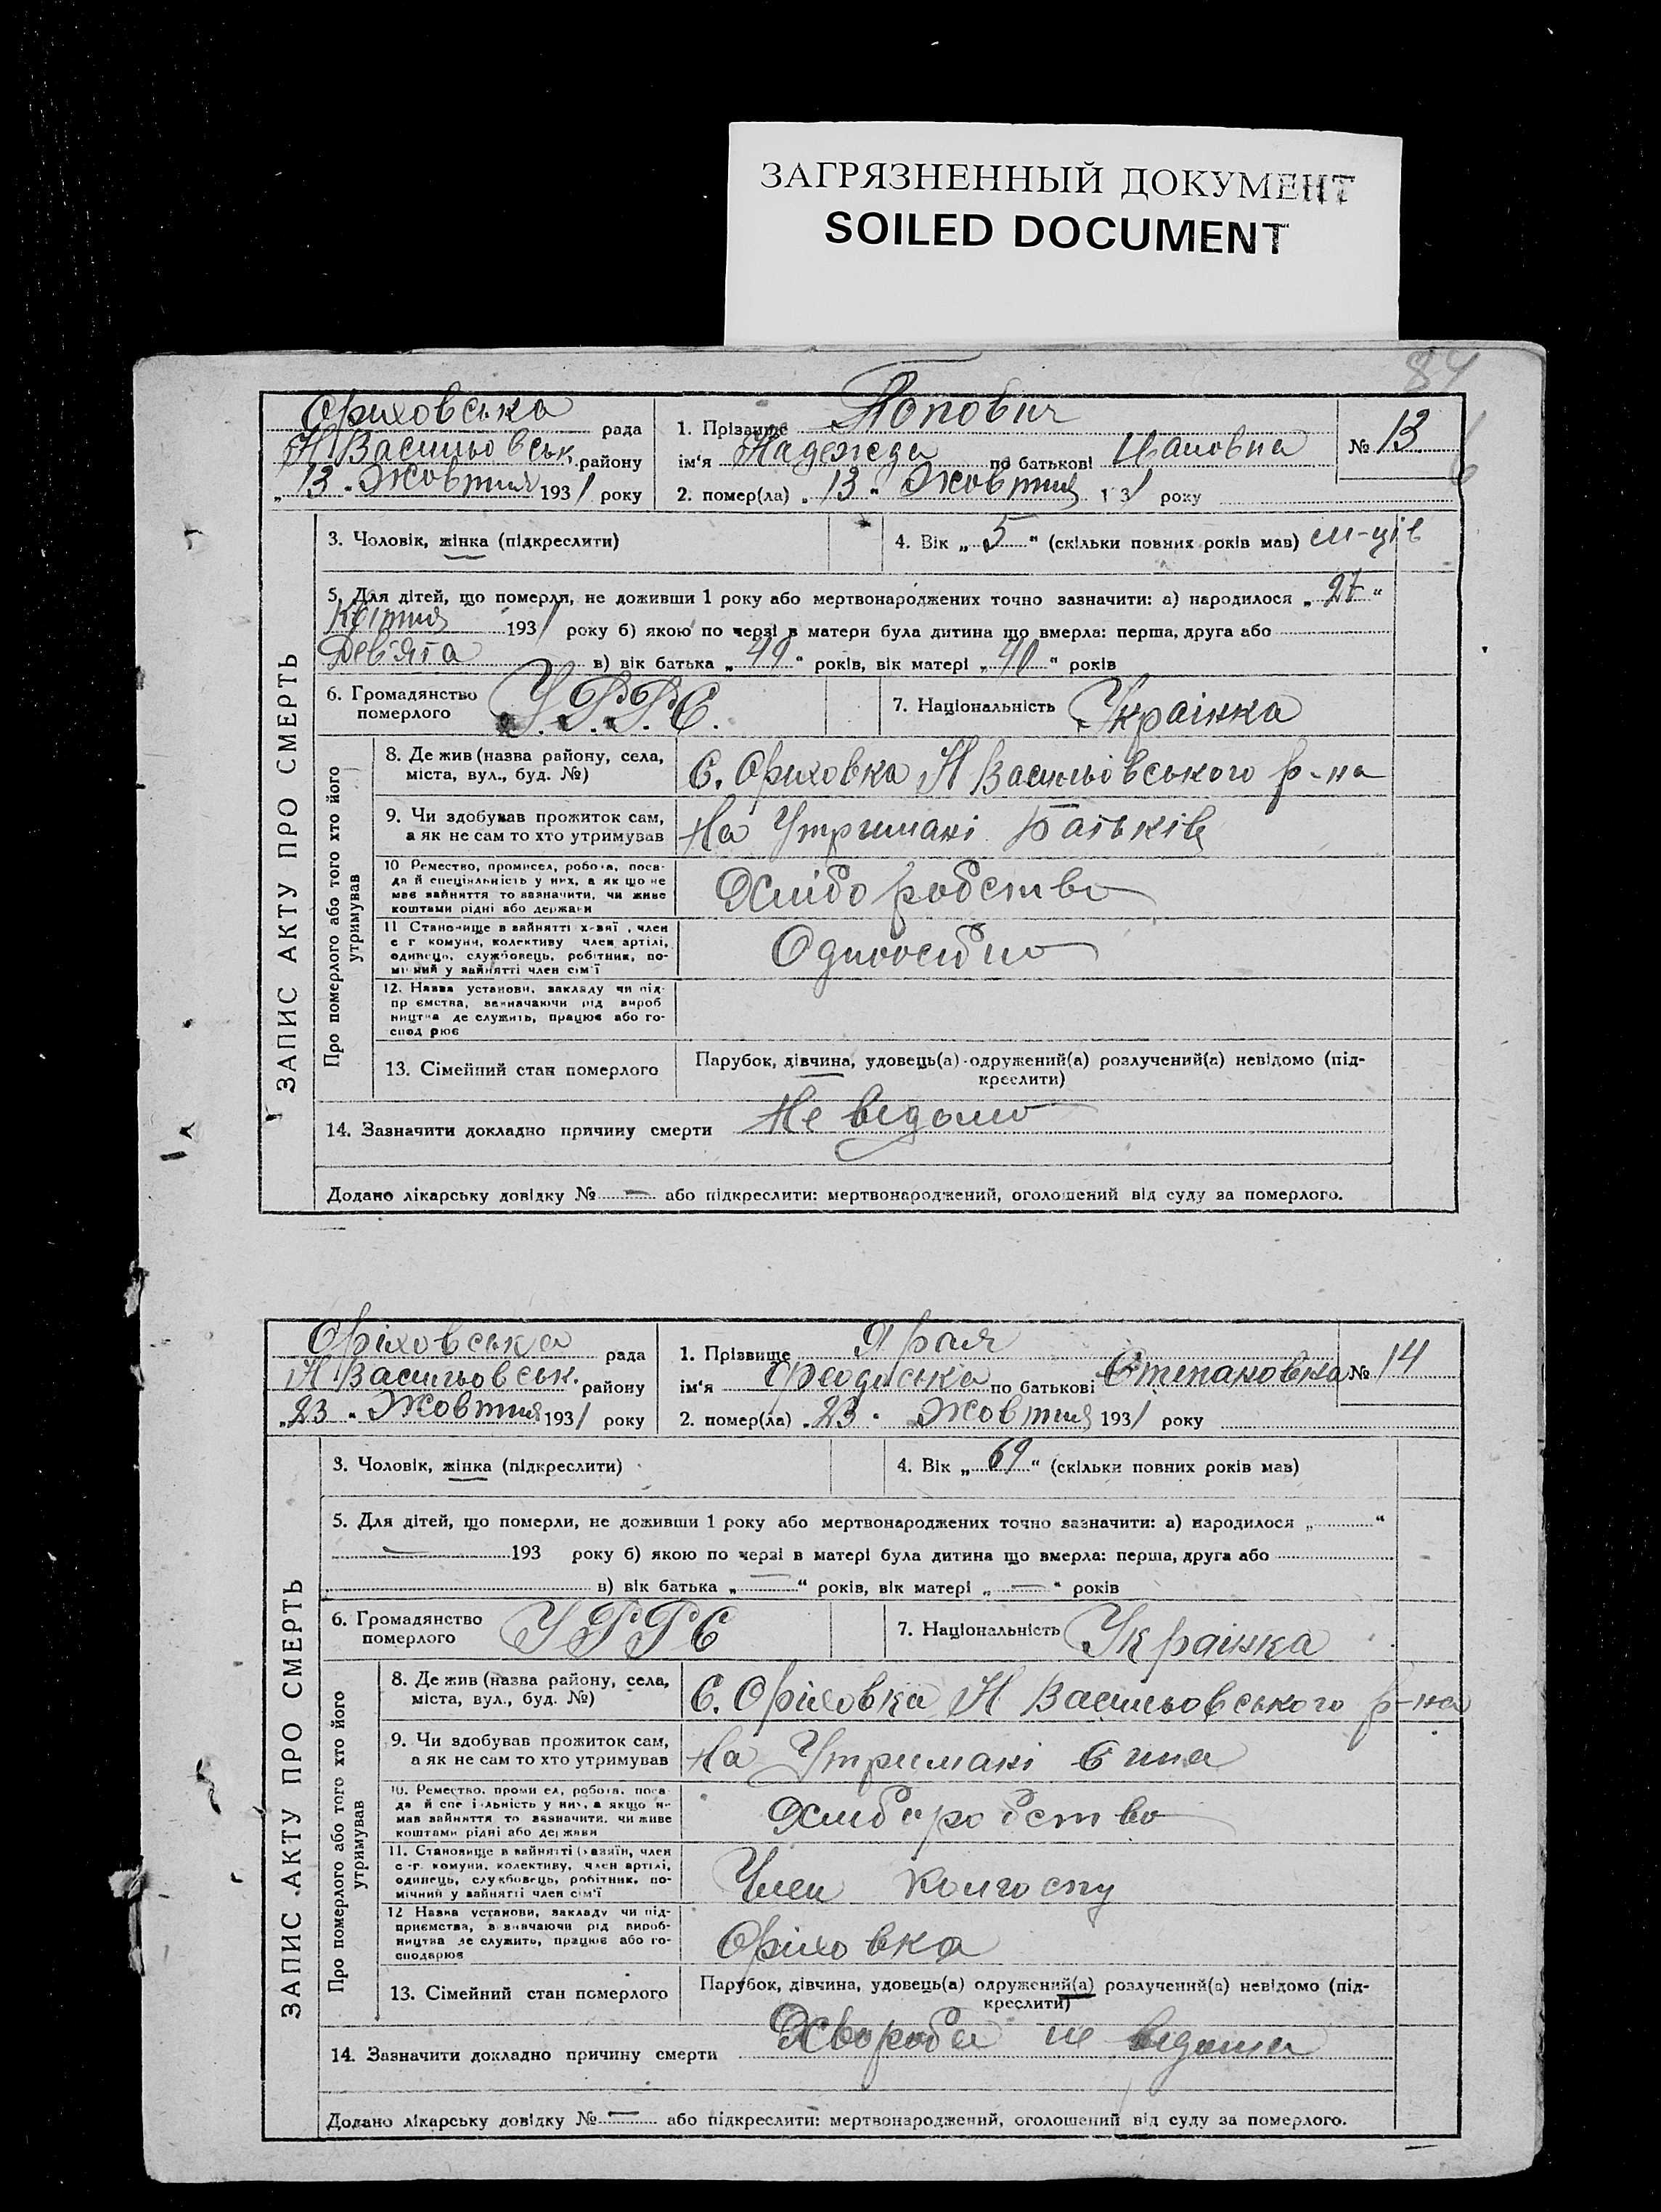 ЗАГРЯЗНЕННЫЙ ДОКУМЕНТ
SOILED DOCUMENT
84
Ориховська рада
Н Васильовськ. району
„13" Жовтня 1931 року
1. Прізвище Попович
ім'я Надежда по батькові Ивановна
2. помер(ла) „13" Жовтня 1931 року
№ 13
ЗАПИС АКТУ ПРО СМЕРТЬ
3. Чоловік, жінка (підкреслити)
4. Вік „5" (скільки повних років мав) м-ців
5. Для дітей, що померли, не доживши 1 року або мертвонароджених точно зазначити: а) народилося „27"
Квітня 1931 року б) якою по черзі в матери була дитина що вмерла: перша, друга або
Дев'ята в) вік батька „49" років, вік матері „40" років
6. Громадянство померлого У.Р.Р.С.
7. Національність Украінка
Про померлого або того хто його утримував
8. Де жив (назва району, села,
міста, вул., буд. №)
С. Ориховка Н Васильовського р-на
9. Чи здобував прожиток сам,
а як не сам то хто утримував
На Утримані Батьків
10 Ремество, промисел, робота, поса-
да й спеціальність у них, а як що не
має зайняття то зазначити, чи живе
коштами рідні або держави
Хлібо робство
11 Становище в зайнятті х-зяї , член
с г комуни, колективу член артілі,
одинець, службовець, робітник, по-
мічний у зайнятті член сім'ї
Одноосібно
12. Назва установи, закладу чи під-
пр ємства, зазначаючи рід вироб
ництва де служить, працює або го-
спод рює
13. Сімейний стан померлого
Парубок, дівчина, удовець(а) одружений(а) розлучений(а) невідомо (під-
креслити)
14. Зазначити докладно причину смерти Не відомо
Додано лікарську довідку № — або підкреслити: мертвонароджений, оголошений від суду за померлого.
Оріховська рада
Н Васильовськ. району
„23" Жовтня 1931 року
1. Прізвище
ім'я Феодоська по батькові Степановна
2. помер(ла) „23" Жовтня 1931 року
№ 14
ЗАПИС АКТУ ПРО СМЕРТЬ
3. Чоловік, жінка (підкреслити)
4. Вік „69" (скільки повних років мав)
5. Для дітей, що померли, не доживши 1 року або мертвонароджених точно зазначити: а) народилося „ "
— 193 року б) якою по черзі в матері була дитина що вмерла: перша, друга або
в) вік батька „—" років, вік матері „—" років
6. Громадянство померлого УРРС
7. Національність Украінка
Про померлого або того хто його утримував
8. Де жив (назва району, села,
міста, вул., буд. №)
С. Оріховка Н Васильовського р-на
9. Чи здобував прожиток сам,
а як не сам то хто утримував
На Утримані Сина
10. Ремество, проми ел, робота, поса-
да й спе і льність у них, а якщо н-
мав зайняття то зазначити, чи живе
коштами рідні або держави
Хлиборобство
11. Становище в зайнятті (хазяїн, член
с -г. комуни, колективу, член артілі,
одинець, службовець, робітник, по-
мічний у зайнятті член сім'ї
Член колгоспу
12 Назва установи, закладу чи під-
приємства, в значаючи рід вироб-
ництва де служить, працює або го-
сподарює
Ориховка
13. Сімейний стан померлого
Парубок, дівчина, удовець(а) одружений(а) розлучений(а) невідомо (під-
креслити)
14. Зазначити докладно причину смерти Хвороба не відома
Додано лікарську довідку № — або підкреслити: мертвонароджений, оголошений від суду за померлого.